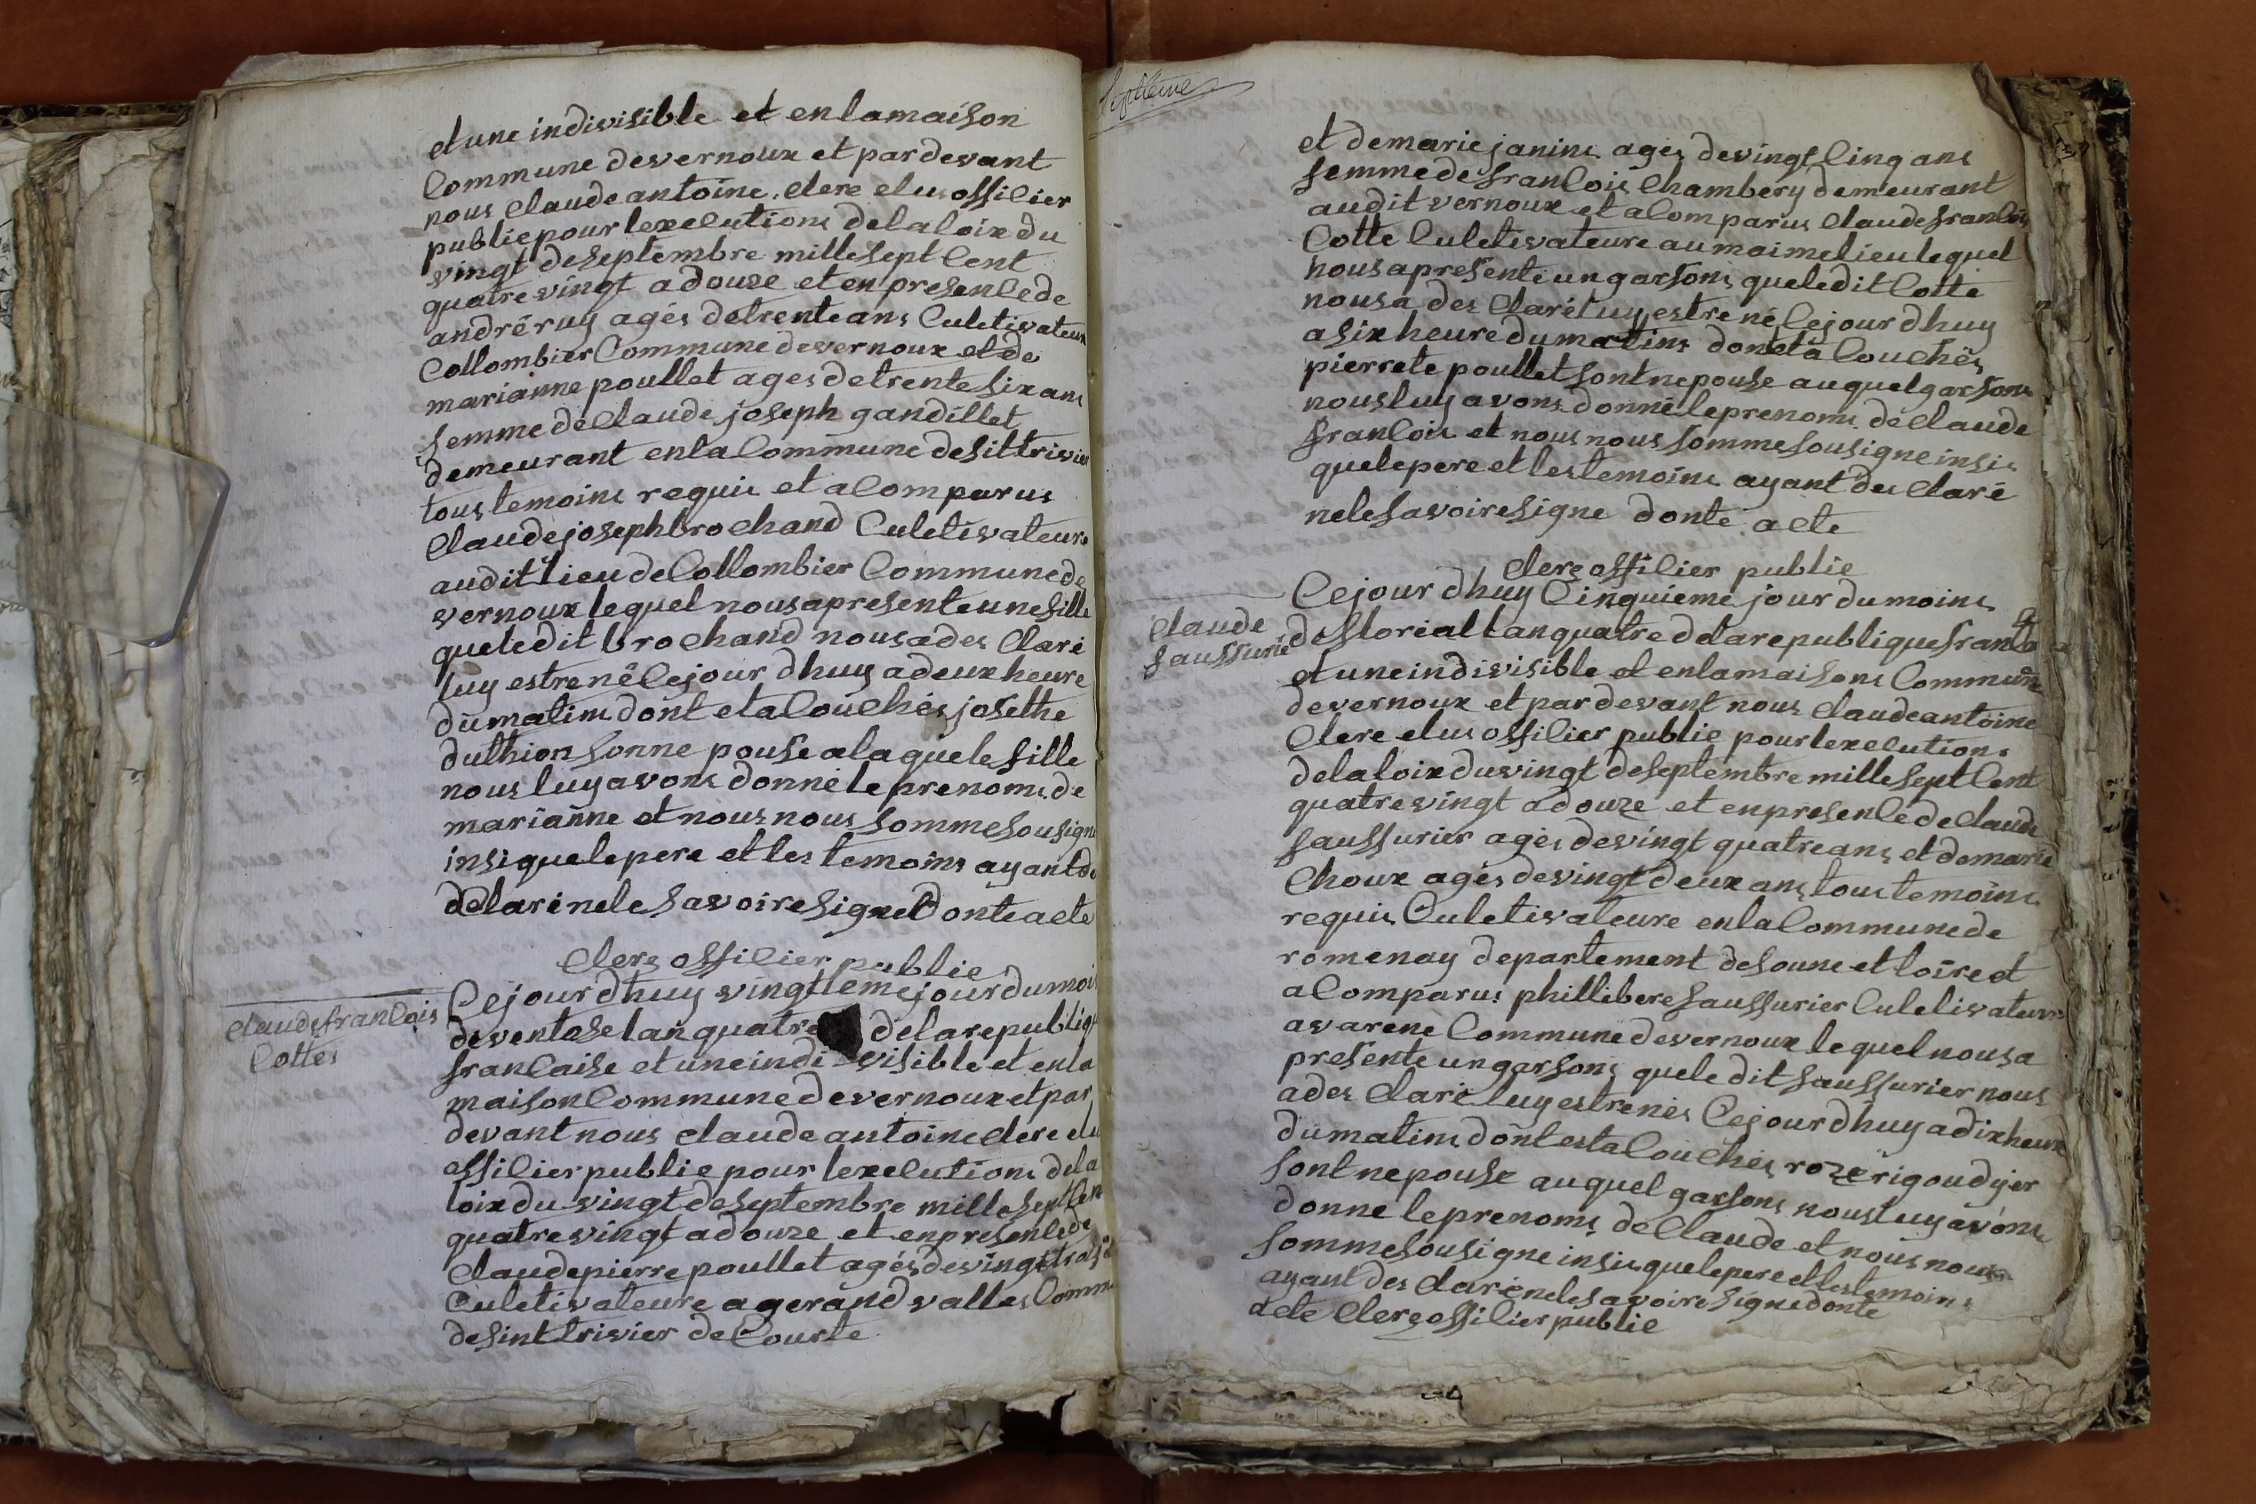 et une indivisible et en la maison
Commune de vernoux et par devant
nous Claude antoine Clere elus offilier
publie pour lexelutions de la loix du
vingt de septembre mille sept Cent
quatre vingt a douze et en presenle de
andré ruy agés de trente ans Culetivateur
Collombier Commune de vernoux et de
marianne poullet ages de trente six ans
femme de Claude joseph gandillet
demeurant en la Commune de sit trivier
tous temoins requis et a Comparus
Claude joseph brochand Culetivateure
au dit lieu de Collombier Commune de
vernoux lequel nous a presente une fille
que le dit brochand nous a des Claré
luy estre né Ce jour dhuy a deux heure
du matins dont eta Couchés josethe
duthion sonne pouse a la quele fille
nous luy avons donné le prenoms de
marianne et nous nous somme sousigne
insi que le pere et les temoins ayant de
delaré nele savoire signer donte acte
Clere offilier publie
Claude franlois
Cottes
Ce jour dhuy vingtieme jour du mois
de ventose lan quatre de la republiq
franlaise et une indivisible et en la
maison Commune de vernoux et par
devant nous Claude antoine Clere elu
offilier publie pour lexelutions de la
loix du vingt de septembre mille sept Cen
quatre vingt a douze et en presenle de
Claude pierre poullet agés de vingt trois a
Culetivateure a gerand valles Comm
de sint trivier de Courte
septieme
et de marie janins agés de vingt Cinq ans
femme de franlois Chambery demeurant
au dit vernoux et a Comparus Claude franlois
Cotte Culetivateure au maime lieu lequel
nous a presente un garsons que le dit Cotte
nous a des Claré luy estre né Ce jour dhuy
a six heure du matins dont eta Couchés
pierrete poullet sont ne pouse au quel garsons
nous luy avons donné le prenoms de Claude
franlois et nous nous somme sousigne insis
que le pere et les temoins ayant des Claré
nele savoire signe donte acte
Clere offilier publie
Claude
saussurié
Ce jour dhuy Cinquieme jour du moins
de florial lan quatre de la republique franla
et une indivisible et en la maisons Commune
de vernoux et par devant nous Claude antoine
Clere elus offilier publie pour lexelutions
de la loix du vingt de septembre mille sept Cent
quatre vingt a douze et en presenle de Claude
saussurier agés de vingt quatre ans et de marie
Choux agés de vingt deux ans tous temoins
requis Culetivateure en la Commune de
romenay departement de soune et loire et
a Comparus phillibere saussurier Culetivateure
a varene Commune de vernoux le quel nous a
presente un garsons que le dit saussurier nous
a des Claré luy estre nés Ce jour dhuy a dix heure
du matins dont esta Couchés roze rigoudyer
sont ne pouse au quel garsons nous luy avons
donne le prenoms de Claude et nous nous
somme sousigne insis que le pere et les temoins
ayant des Claré nele savoire signe donte
acte Clere offilier publie